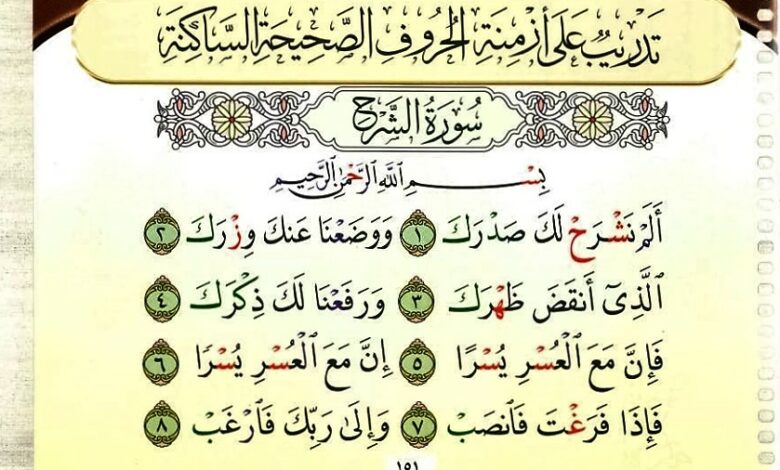 تَدْرِيبٌ عَلَى أَزْمِنَةِ الحُرُوفِ الصَّحِيحَةِ السَّاكِنَةِ
سُورَةُ الشَّرْحِ
بِسْمِ ٱللَّهِ ٱلرَّحْمَٰنِ ٱلرَّحِيمِ
أَلَمْ نَشْرَحْ لَكَ صَدْرَكَ ١ وَوَضَعْنَا عَنكَ وِزْرَكَ ٢
ٱلَّذِىٓ أَنقَضَ ظَهْرَكَ ٣ وَرَفَعْنَا لَكَ ذِكْرَكَ ٤
فَإِنَّ مَعَ ٱلْعُسْرِ يُسْرًا ٥ إِنَّ مَعَ ٱلْعُسْرِ يُسْرًا ٦
فَإِذَا فَرَغْتَ فَٱنصَبْ ٧ وَإِلَىٰ رَبِّكَ فَٱرْغَب ٨
١٥١